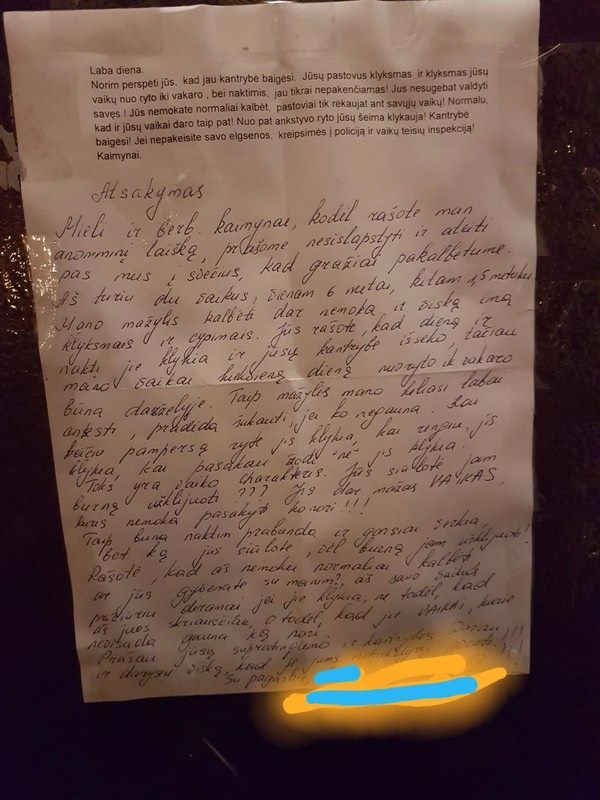 Laba diena.
Norim perspėti jūs, kad jau kantrybė baigėsi. Jūsų pastovus klyksmas ir klyksmas jūsų
vaikų nuo ryto iki vakaro , bei naktimis, jau tikrai nepakenčiamas! Jus nesugebat valdyti
savęs ! Jūs nemokate normaliai kalbėt, pastoviai tik rėkaujat ant savųjų vaikų! Normalu,
kad ir jūsų vaikai daro taip pat! Nuo pat ankstyvo ryto jūsų šeima klykauja! Kantrybė
baigėsi! Jei nepakeisite savo elgsenos, kreipsimės į policiją ir vaikų teisių inspekciją!
Kaimynai.
Atsakymas
Mieli ir gerb. kaimynai, kodėl rašote man
anoniminį laišką, prašome nesislapstyti ir ateiti
pas mus į svečius, kad gražiai pakalbėtume.
Aš turiu du vaikus, vienam 6 metai, kitam 1,5 metuku
Mano mažylis kalbėti dar nemoka ir viską ima
klyksmais ir cypimais. Jūs rašote, kad dieną ir
naktį jie klykia ir jūsų kantrybė išseko, tačiau
mano vaikai kiekvieną dieną nuo ryto ik vakaro
būna darželyje. Taip mažylis mano keliasi labai
anksti, pradeda šūkauti, jei ko negauna. Kai
keičiu pampersą ryte jis klykia, kai rengiu, jis
klykia, kai pasakau žodį "ne" jis klykia.
Toks yra vaiko charakteris. Jūs siūlote jam
burną užklijuoti ??? Jis dar mažas VAIKAS,
kuris nemoka pasakyt ko nori !!!
Taip būna naktim prabunda ir garsiai verkia,
bet ką jūs siūlote, vėl burną jam užklijuoti?
Rašote, kad aš nemoku normaliai kalbėti
ar jūs gyvenate su manimi, aš savo vaikus
prižiūriu doramai jei jie klykia, ne todėl, kad
aš juos skriausčiau, o todėl, kad jie VAIKAI, kurie
nevisada gauna ką nori.
Prašau jūsų supratingumo ir kantrybės
ir darysiu viską, kad jie jums
Su pagarba